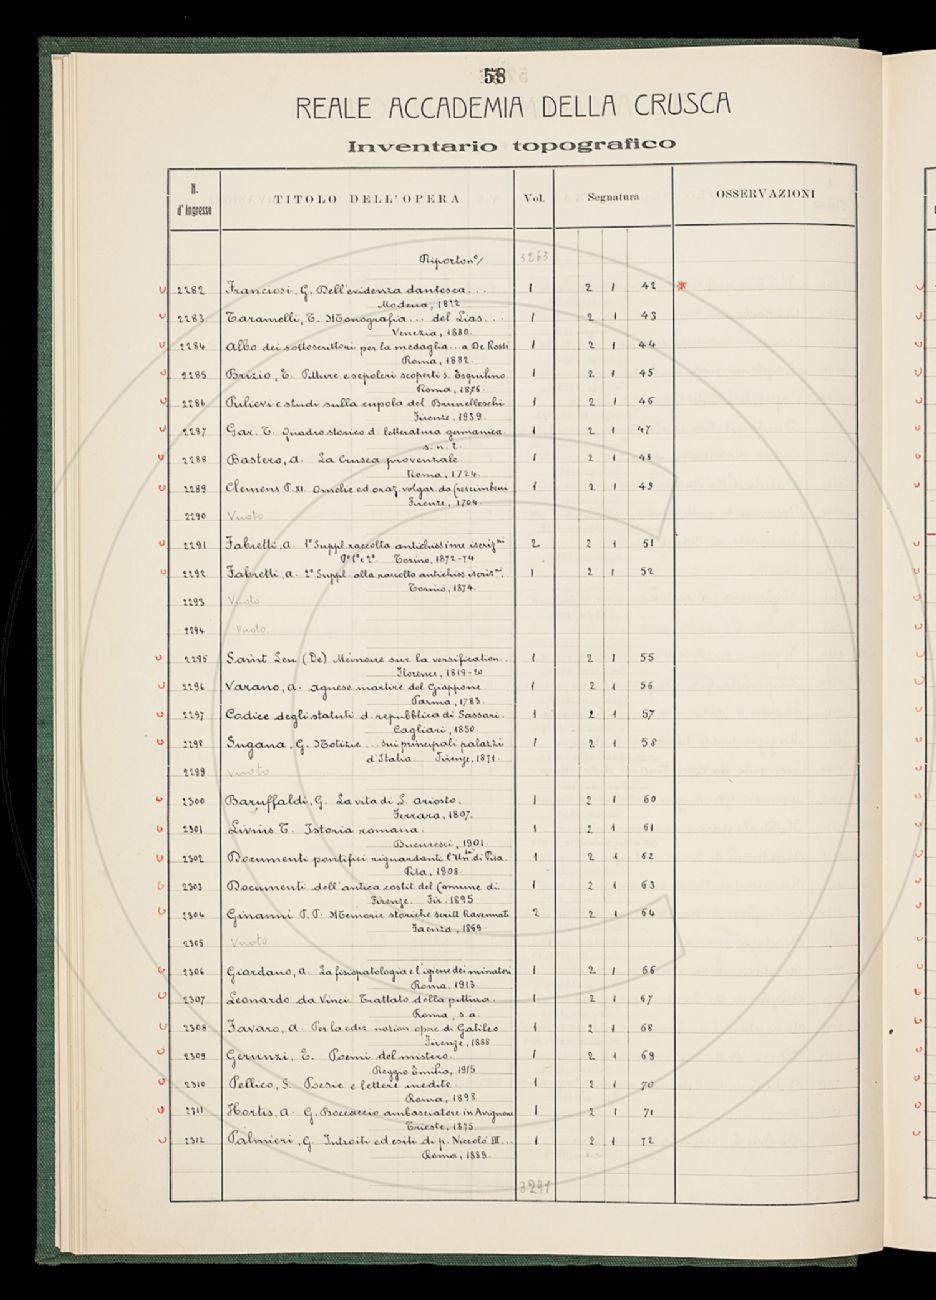 58
REALE ACCADEMIA DELLA CRUSCA
Inventario topografico
N. d'ingresso TITOLO DELL'OPERA Vol. Segnatura OSSERVAZIONI
3263
2282 Franciosi, G. Dell'evidenza dantesca... 1 2 1 42 *
Modena, 1872
2283 Taramelli, T. Monografia... del Lias... 1 2 1 43
Venezia, 1880.
2284 Albo dei sottoscrittori per la medaglia... a De Rossi 1 2 1 44
Roma, 1882.
2285 Brizio, E. Pitture e sepolcri scoperti s. Esquilino 1 2 1 45
Roma, 1876.
2286 Rilievi e studi sulla cupola del Brunelleschi 1 2 1 46
Firenze, 1939.
2287 Gar. T. Quadro storico d. letteratura germanica 1 2 1 47
s. n. t.
2288 Bastero, A. La Crusca provenzale. 1 2 1 48
Roma, 1724.
2289 Clemens P. XI. Omelie ed oraz. volgar. da Crescimbeni 1 2 1 49
Firenze, 1704.
2290 Vuoto
2291 Fabretti, A. 1° Suppl. raccolta antichissime iscriz.ni 2 2 1 51
P. 1ª e 2ª Torino, 1872-74
2292 Fabretti, A. 2° Suppl. alla raccolta antichiss. iscriz.ni 1 2 1 52
Torino, 1874.
2293 Vuoto
2294 Vuoto
2295 Saint Leu (De) Mémoire sur la versification... 1 2 1 55
Florence, 1819-20
2296 Varano, A. Agnese martire del Giappone 1 2 1 56
Parma, 1783.
2297 Codice degli statuti d. repubblica di Sassari. 1 2 1 57
Cagliari, 1850.
2298 Sugana, G. Notizie... sui principali palazzi 1 2 1 58
d'Italia Firenze, 1871.
2299 Vuoto
2300 Baruffaldi, G. La vita di L. Ariosto. 1 2 1 60
Ferrara, 1807.
2301 Livius T. Istoria romana. 1 2 1 61
Bucuresci, 1901.
2302 Documenti pontifici riguardanti l'Un.tà di Pisa. 1 2 1 62
Pisa, 1908.
2303 Documenti dell'antica costit. del Comune di 1 2 1 63
Firenze. Fir. 1895
2304 Ginanni P. P. Memorie storiche scritt. Ravennati 2 2 1 64
Faenza, 1869.
2305 Vuoto
2306 Giordano, A. La fisiopatologia e l'igiene dei minatori 1 2 1 66
Roma, 1913.
2307 Leonardo da Vinci. Trattato della pittura. 1 2 1 67
Roma, s. a.
2308 Favaro, A. Per la ediz. nazion. opere di Galileo 1 2 1 68
Firenze, 1888
2309 Gerunzi, E. Poemi del mistero. 1 2 1 69
Reggio Emilia, 1915
2310 Pellico, S. Poesie e lettere inedite. 1 2 1 70
Roma, 1898.
2311 Hortis, A. G. Boccaccio ambasciatore in Avignone 1 2 1 71
Trieste, 1875
2312 Palmieri, G. Introiti ed esiti di p. Niccolò III... 1 2 1 72
Roma, 1889.
3291